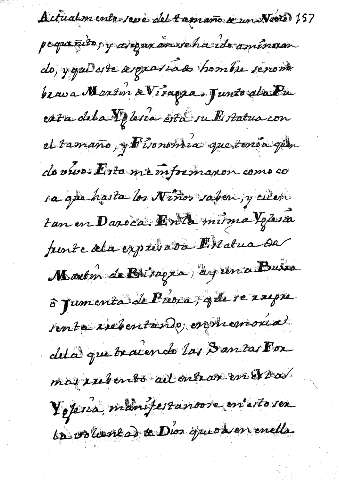 Actualmente se ve del tamaño de un Novio 157
pequeñito; y aseguran se ha ido aminoran
do, y que este desgraciado hombre se nom
braba Martin de Visagra. Junto a la Pu
erta de la Yglesia està su Estatua con
el tamaño, y Fisonomia que tenia quan
do vivo. Esto me infrmaron como co
sa que hasta los Niños saben, y cuen
tan en Daroca. En la misma Yglesia
frente de la expresada Estatua de
Martin de Bisagra, ay una Burra
ô Jumenta de Piedra, que se repre
senta rrebentando, en memoria
de la que trayendo las Santas For
mas rrebento al entrar en esta
Yglesia, manifestandose en esto ser
la voluntad de Dios quedasen en ella